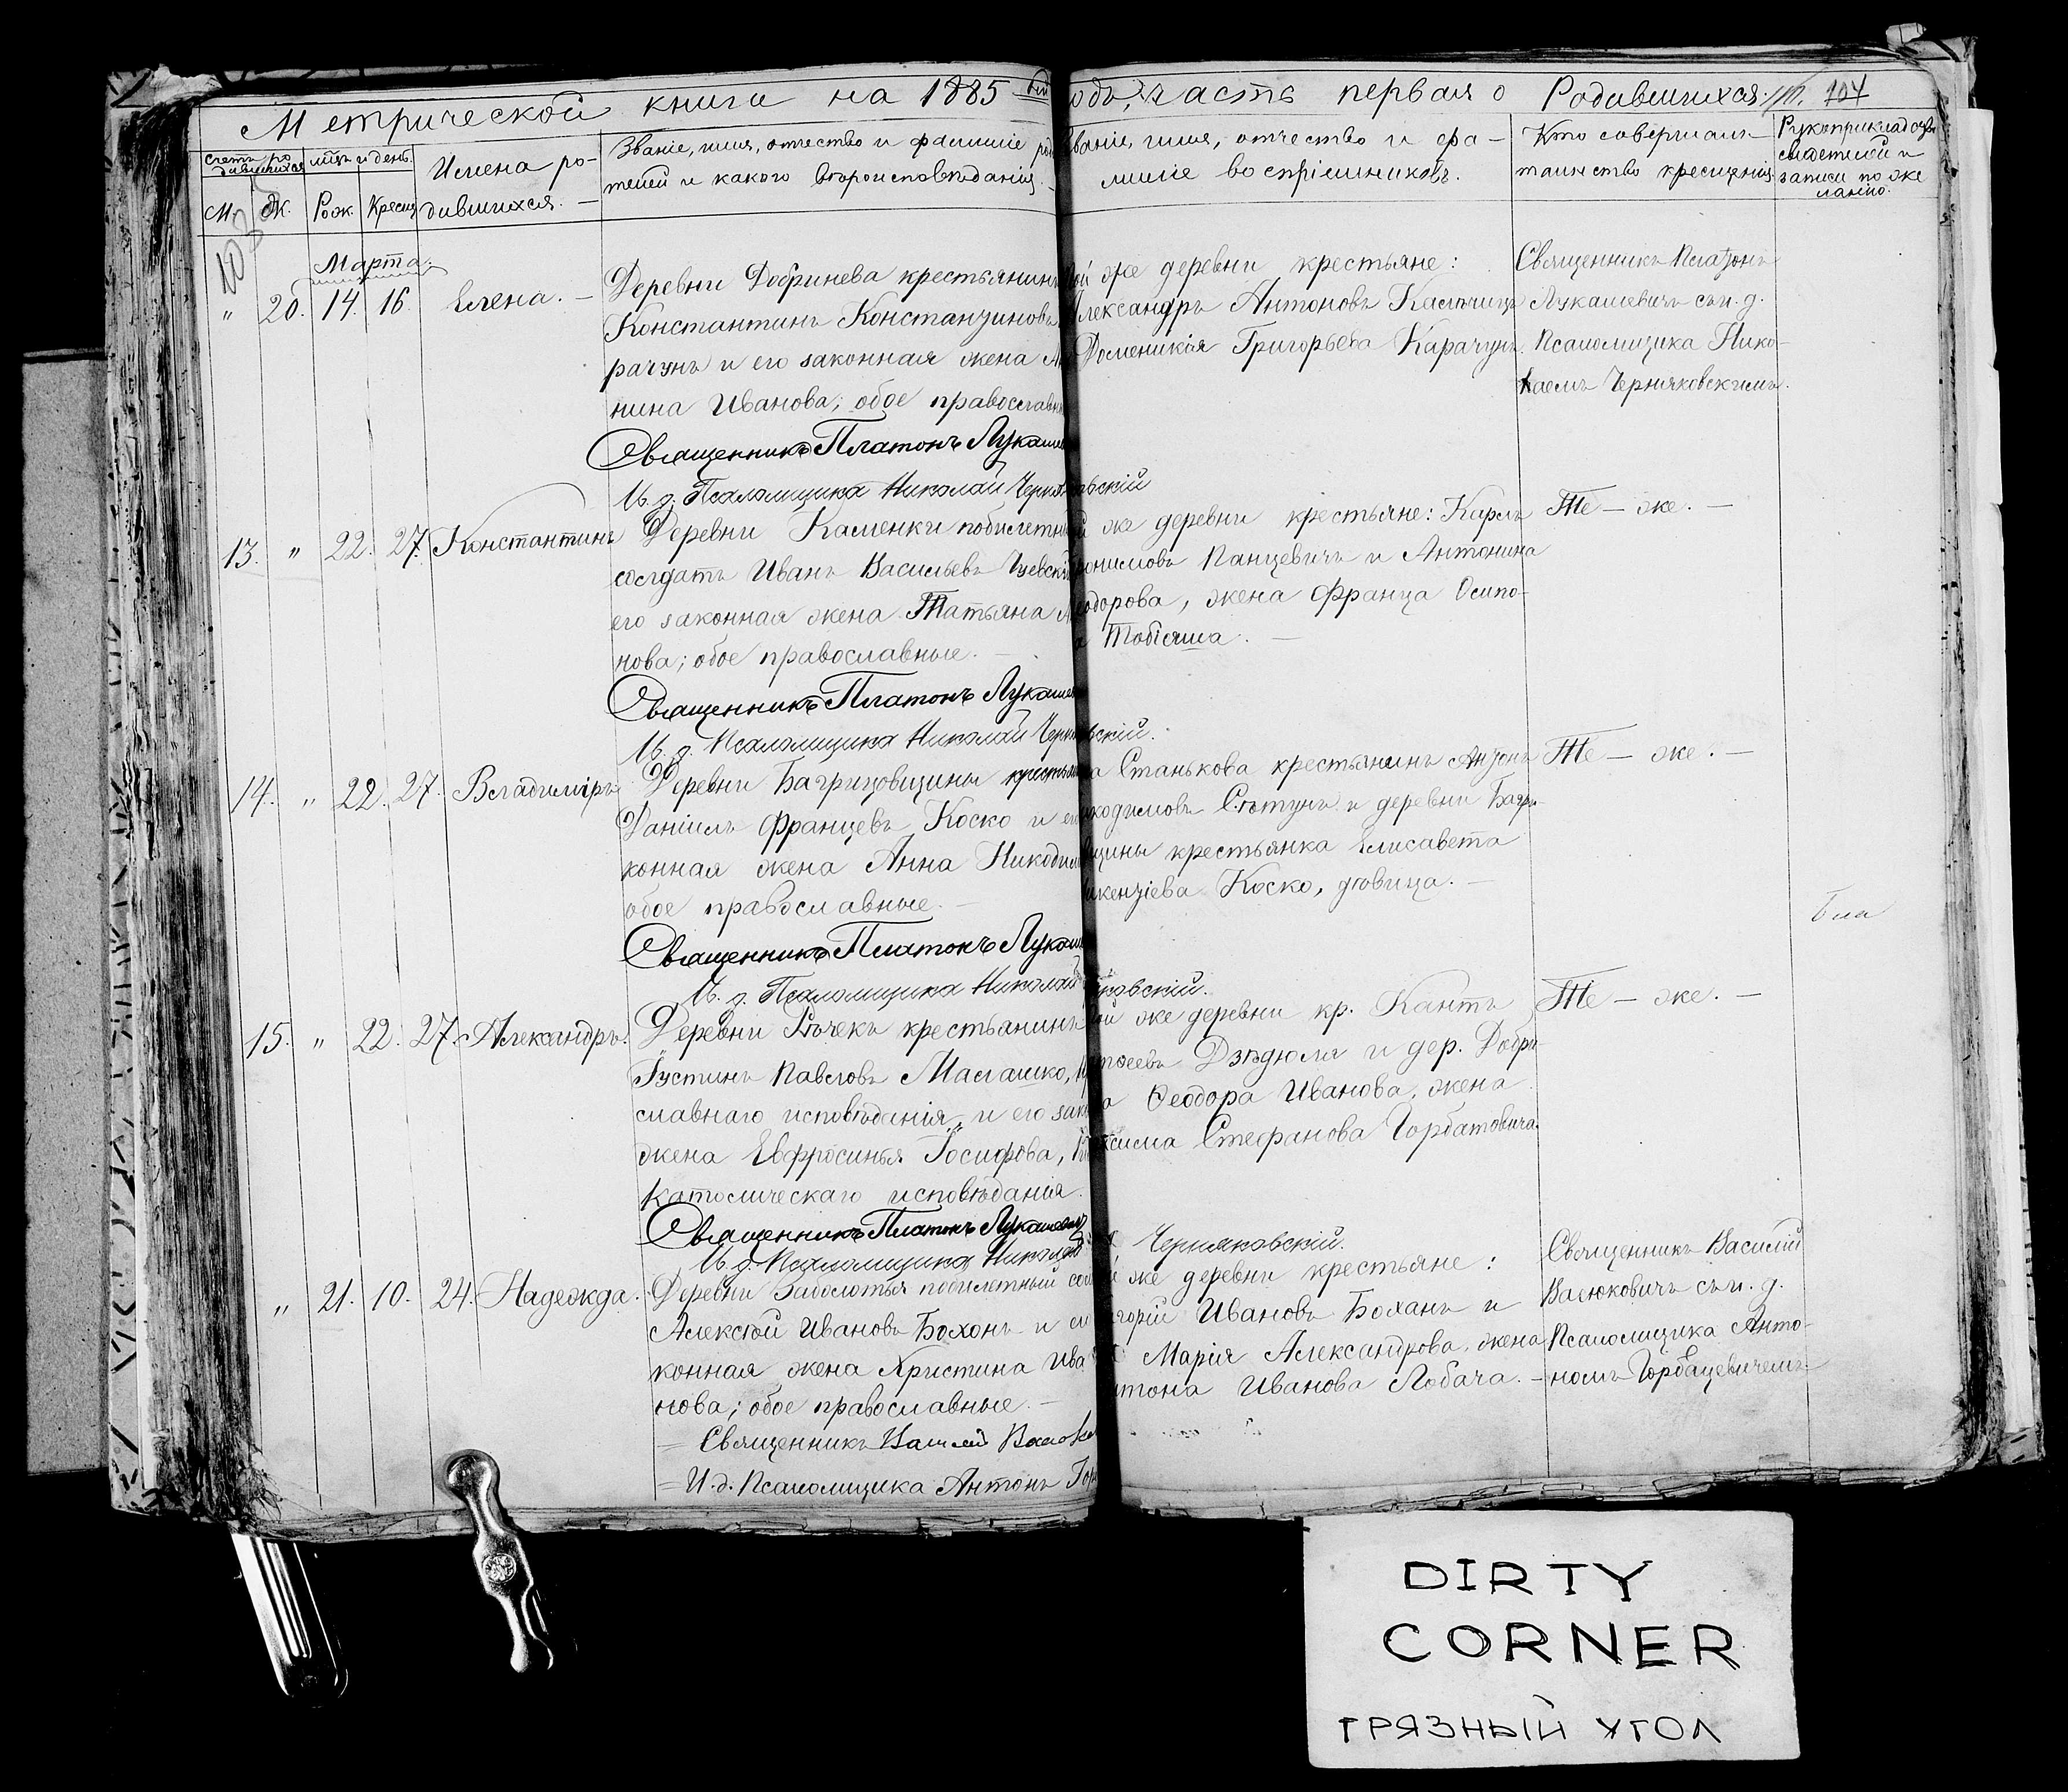 Метрической книги на 1885-ый
годъ, часть первая о Родившихся.
104
Счетъ ро-
дившихся
мцъ и день.
М. Ж. Рож. Крещ.
Имена ро-
дившихся. —
Званіе, имя, отчество и фамиліе
телей и какого вѣроисповѣданія.
Званіе, имя, отчество и фа-
миліе воспріемниковъ.
Кто совершалъ
таинство крещенія
Рукоприкладство
свидетелей и
записи по же
ланію.
Марта.
" 20. 14. 16. Елена. —
Деревни Добринева крестьянинъ
Константинъ Константиновъ
рачунъ и его законная жена
нина Иванова; обое православн
Священникъ Платонъ Лукаше
И. д. Псаломщика Николай Черняковскій
же деревни крестьяне:
Александръ Антоновъ
Доменикія Григорьева Карачунъ.
Священникъ Платонъ
Лукашевичъ съ и. д.
Псаломщика Нико-
лаемъ Черняковскимъ.
13. " 22. 27. Константинъ
Деревни Каменки побилетн
солдатъ Иванъ Васильевъ
его законная жена Татьяна
нова; обое православные. —
Священникъ Платонъ Лукаше
И. д. Псаломщика Николай Черняковскій.
же деревни крестьяне: Карлъ
онимовъ Панцевичъ и Антонина
еодорова, жена Франца Осипо-
а Тобіяша. —
Тѣ — же. —
14. " 22. 27. Владиміръ
Деревни Багрицовщины крестьян
Даніилъ Францевъ Коско и е
конная жена Анна Никодим
обое православные. —
Священникъ Платонъ Лукаш
И. д. Псаломщика Николай
ковскій.
а Станькова крестьянинъ Антонъ
икодимовъ Сѣтунъ и деревни Багри-
щины крестьянка Елисавета
икентіева Коско, дѣвица. —
Тѣ — же. —
15. " 22. 27. Александръ.
Деревни Рѣчекъ крестьянинъ
Іустинъ Павловъ Малашко,
славнаго исповѣданія, и его зак
жена Евфросинья Іосифова,
католическаго исповѣданія.
Священникъ Платонъ Лукашевичъ
И. д. Псаломщика Николай
Черняковскій.
же деревни кр. Кантъ
Дзѣдюля и дер. Добри-
а Ѳеодора Иванова, жена
ксима Стефанова Горбатовича.
Тѣ — же. —
" 21. 10. 24. Надежда.
Деревни Заболотья побилетный со
Алексѣй Ивановъ Боханъ и
конная жена Христина Ива
нова; обое православные. —
— Священникъ Василій
— И. д. Псаломщика Антонъ Гор
же деревни крестьяне:
горій Ивановъ Боханъ и
Марія Александрова, жена
тона Иванова Лобача. —
Священникъ Василій
Васюковичъ съ и. д.
Псаломщика Анто-
номъ Горбацевичемъ.
DIRTY
CORNER
ГРЯЗНЫЙ УГОЛ